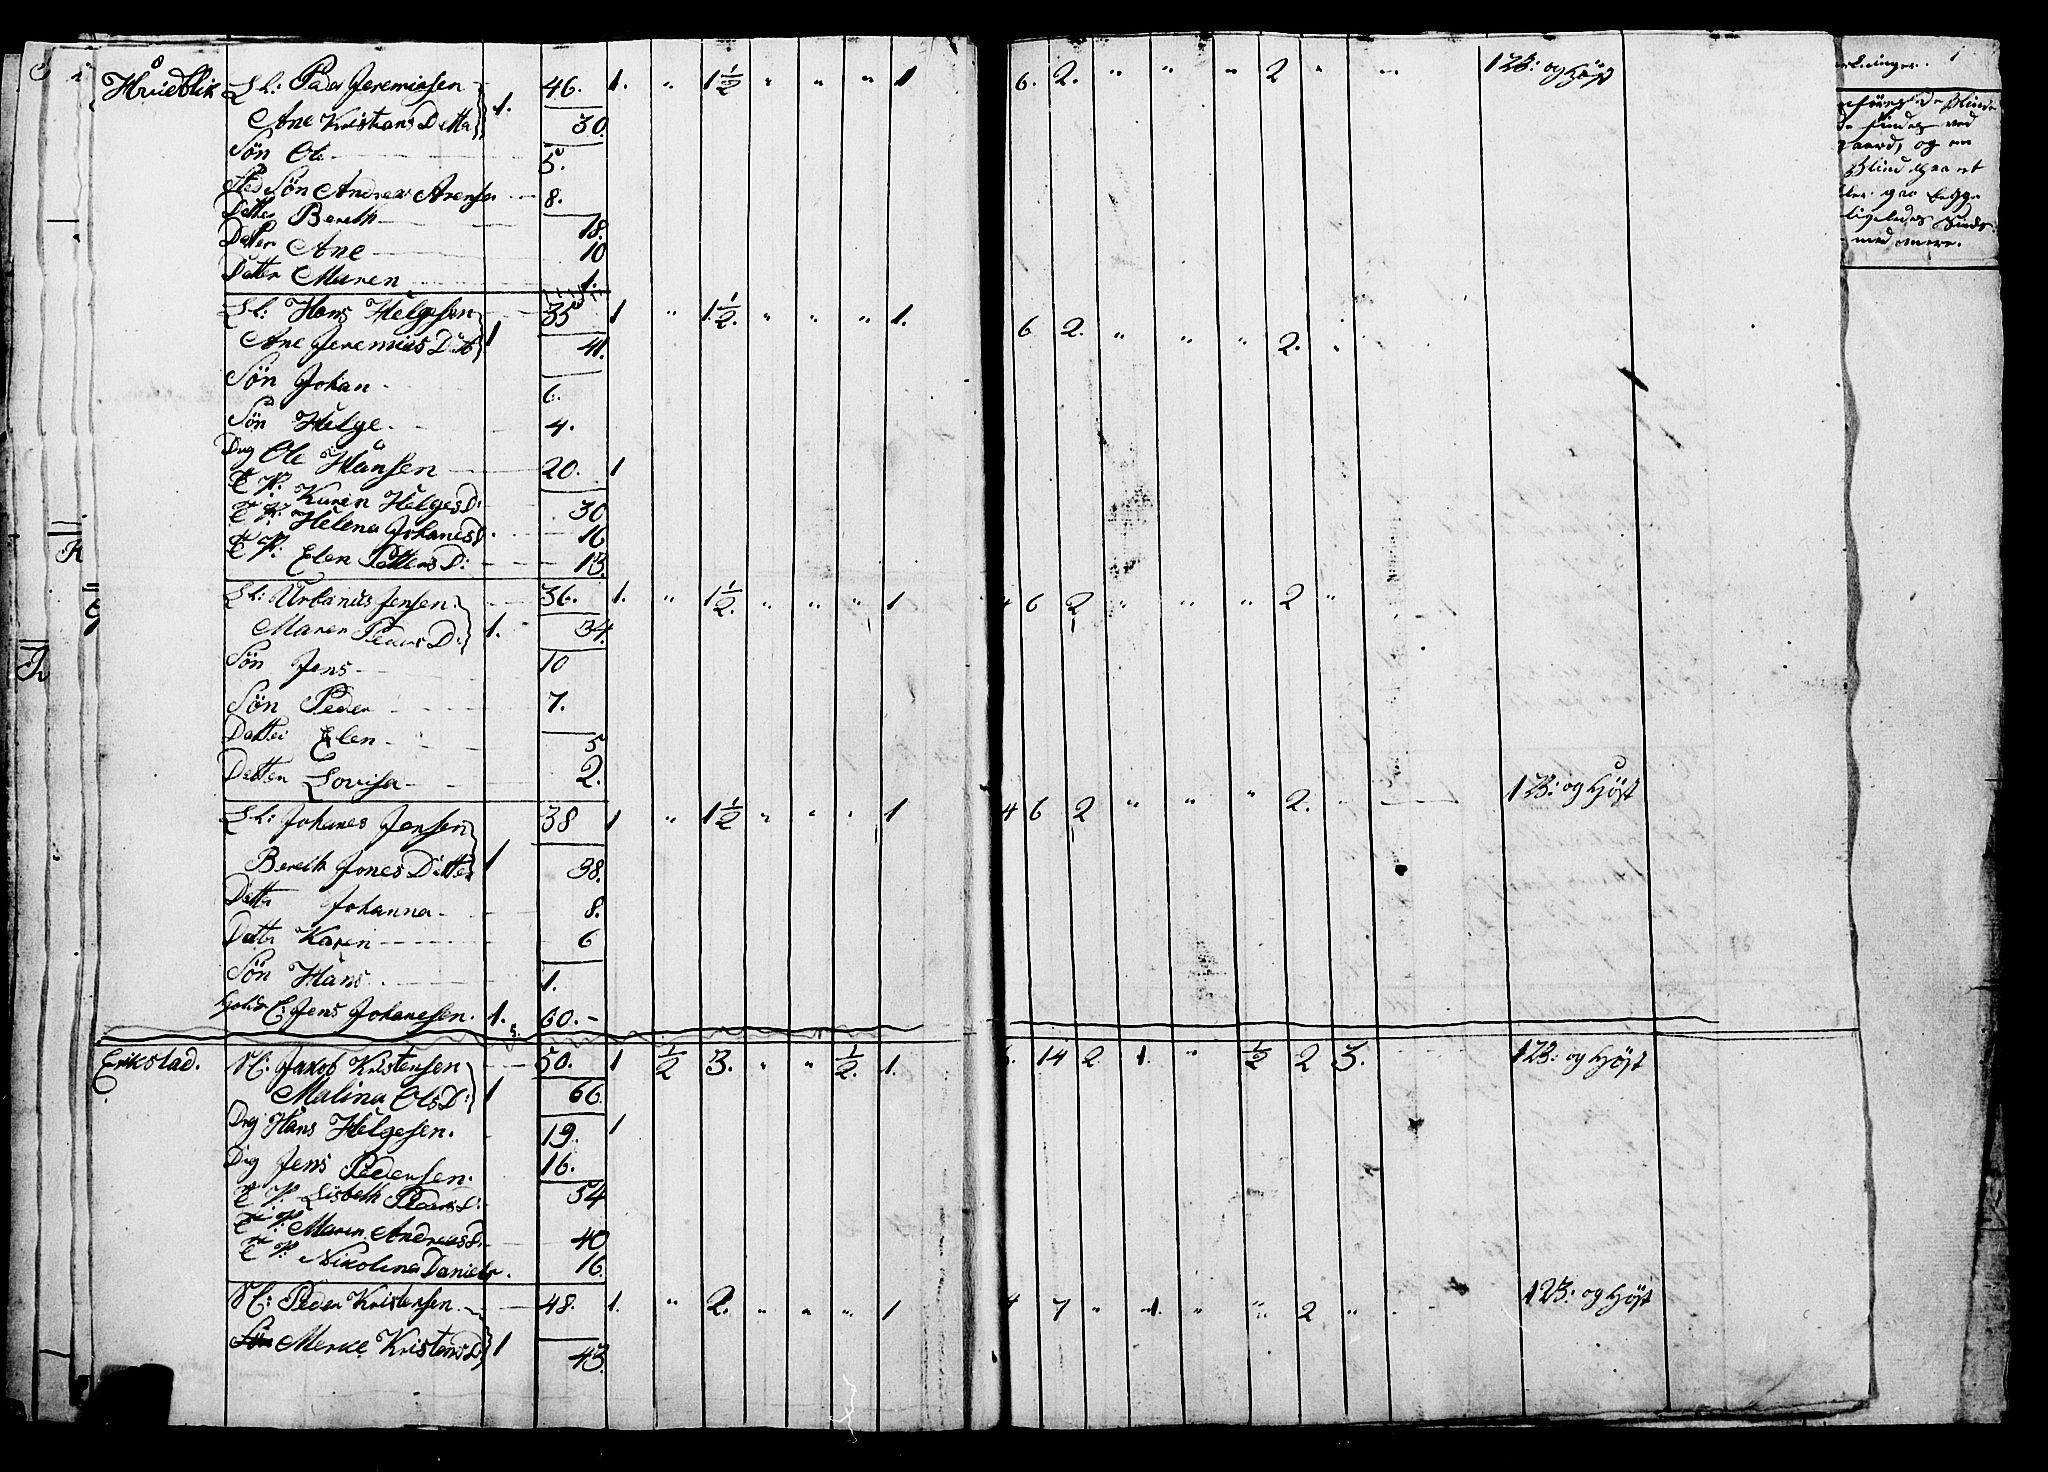 Hundblik Ll: Peder Jeremiesen 1. 46. 1. " 1½ " " " 1 6. 2. " " " 2 " " 1 B: og Höst
Ane Kristians Datter 30.
Søn Ole 5.
Sted Søn Andreas Arensen 8.
Datter Bereth 18.
Datter Ane 10
Datter Maren 1.
Ll: Hans Helgesen 1 35 1 " 1½. " " " 1. 6 2. " " " 2. "
Ane Jeremias Datt 41.
Søn Johan 6.
Søn Helge 4.
Drg Ole Hansen 20. 1
T P: Karen Helges D: 30
T P: Helena Johanes D. 16
T P: Elen Petters D: 13.
Ll: Urbanus Jensen 1. 36. 1. " 1½. " " " 1 4 6 2 " " " 2 "
Maren Peders D: 34.
Søn Jens 10
Søn Peder 7.
Datter Elen 5
Datter Lovisa 2.
Ll: Johanes Jensen 1 38 1 " 1½ " " " 1 4 6 2 " " " 2. " 1 B: og Höst
Bereth Jones Datter 38.
Datter Johanna 8.
Datter Karen 6
Søn Hans 1.
Jens Johanesen. 1. 60.
5.
Erikstad. Jakob Kristensen 1 50. 1 ½ 3. " " ½. 1. 14 2. 1. " ½ 2 3. 1 B: og Höst
Malina Ols D: 66
Drg Hans Helgesen. 19. 1
Drg Jens Pedersen. 16.
T P: Lisbeth Peders D: 54
T P: Maren Andreas D. 40
T P: Nikolina Daniels. 16.
Peder Kristensen 1 48. 1. " 2. " " " 1 4 7 " 1. " " 2 " 1 B: og Höst
Merete Kristens D 43.
og en
med mere.